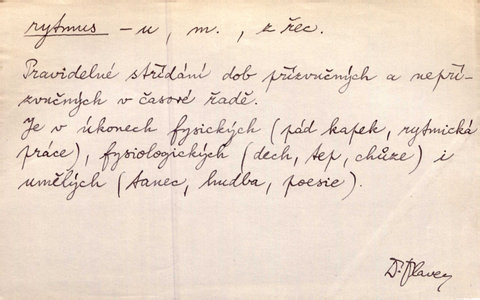 rytmus – u, m., z řec.
Pravidelné střídání dob přízvučných a nepří-
zvučných v časové řadě.
Je v úkonech fysických (pád kapek, rytmická
práce), fysiologických (dech, tep, chůze) i
umělých (tanec, hudba, poesie).